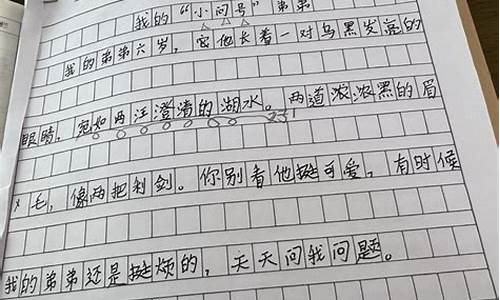 我的“小问号”弟弟
我的弟弟六岁，他长着一对乌黑发亮的
眼睛，宛如两汪澄清的湖水。两道浓浓黑的眉
毛，像两把利剑。你别看他挺可爱，有时候
我的弟弟还是挺烦的，天天问我问题。